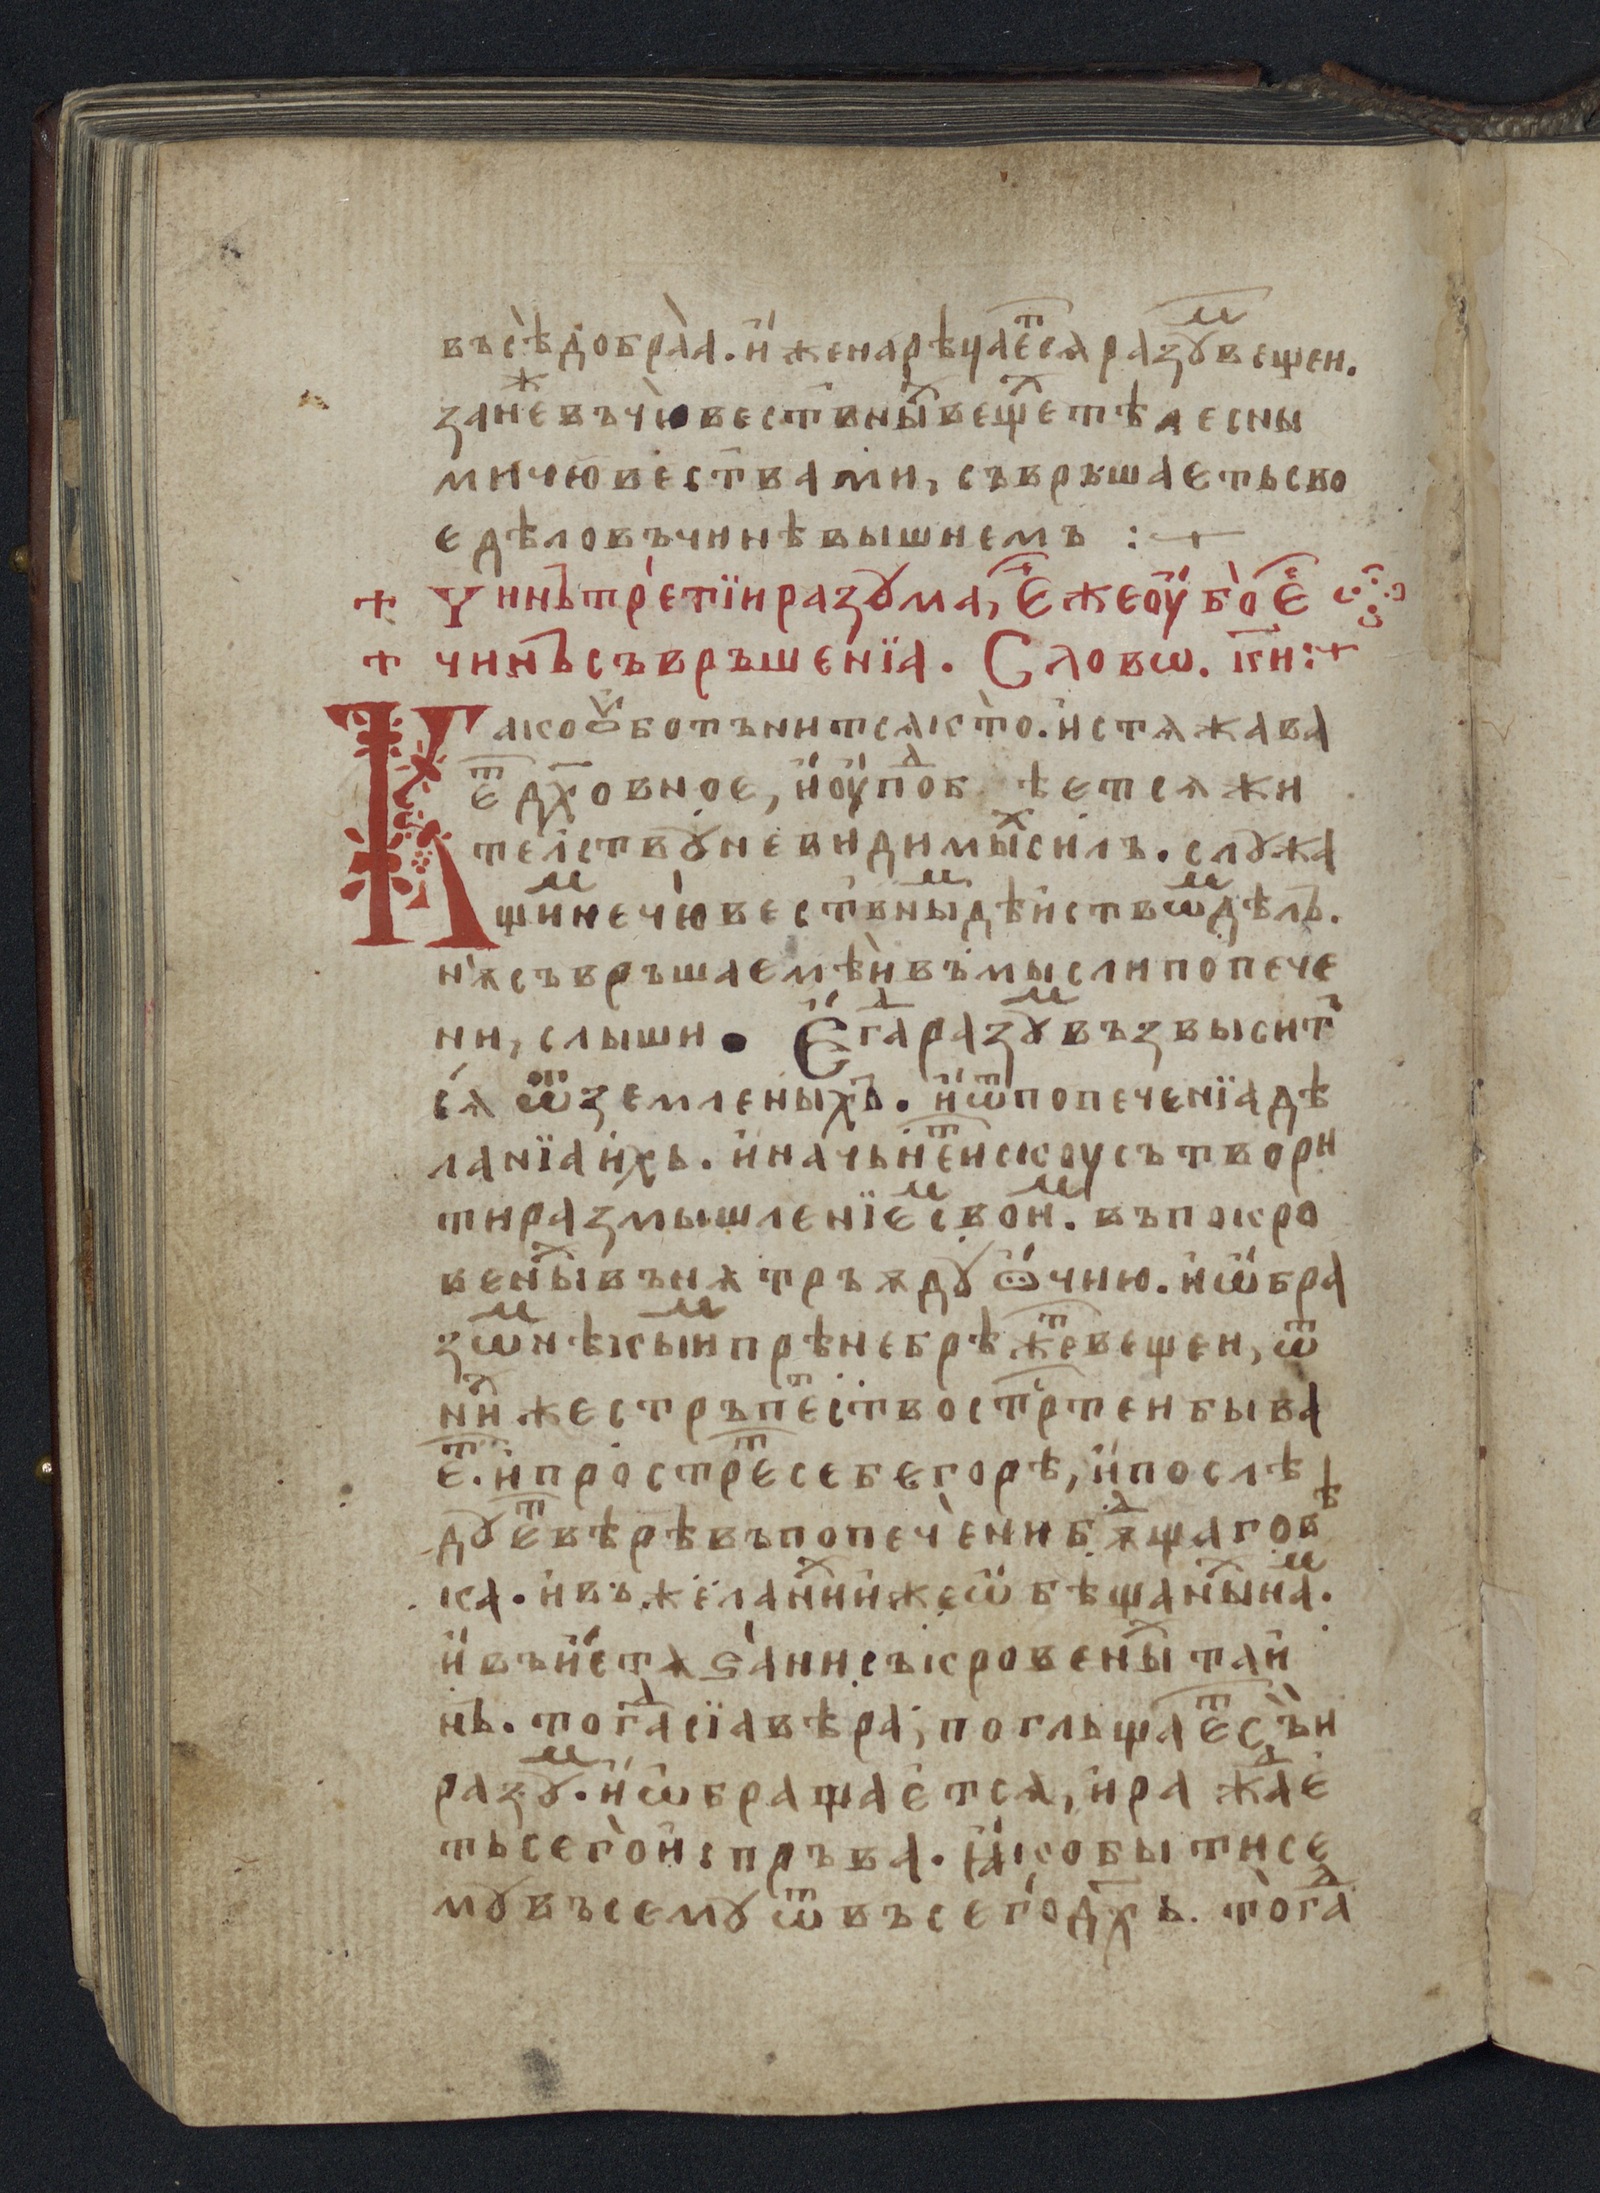 въсѣ добраа. и҆ же нарѣчае҆ⷮсѧ разꙋⷨ вещеи.
занеⷤ въ чювествⷩ҇ыⷯ вещеⷯ тѣлесны
ми чювествами, съвръшаетъ сво
е дѣло въ чинѣ вышнемъ :+
+ Чинь третїи разꙋма, Е҆же оу҆бо еⷭ҇
+ чинь съвръшенїа. Слово. к҃и:+
Како ꙋ҆бо тънитсѧ кто. и҆стѧжава
еⷮ дх҃овное, и҆ оу҆поⷣобѣетсѧ жи
телствꙋ невидимыⷯ силъ. слꙋжа
щиⷨ нечювествныⷨ дѣиствоⷨ дѣль.
нѫ съвръшаемѣи въ мысли попече
ни, слыши. Е҆гⷣа разꙋⷨ възвыситⸯ
сѧ ѿ земленыхъ. и҆ ѿ попеченїа дѣ
ланїа и҆хь. и҆ начьнеⷮ и҆скоу сътвори
ти размышленїеⷨ своиⷨ. въ покро
веныⷯ вънѫтръѫдꙋ ѻ҆чию. и҆ ѡ҆бра
зѡⷨ нѣкыⷨ и прѣнебрѣжеⷮ вещеи, ѿ
ниⷯже стръпеⷮство стрⷭ҇теи быва
еⷮ. и҆ прострⷮе себе горѣ, и҆ послѣ
дꙋеⷮ вѣрѣ въ попечени бѫⷣщаго вѣ
ка. и҆ въ желании҆же ѡ҆бѣщаныⷯ наⷨ.
и҆ въ и҆стѧѕани съкровеныⷯ таи
нь. тогⷣа сїа вѣра, поглъщаеⷮ съи
разꙋⷨ. и҆ ѡ҆бращае҆тсѧ, и҆ ражⷣае҆
ть сего и҆спръва. ꙗ҆ко быти се
мꙋ въсемꙋ ѿ въсего дх҃ъ. тогⷣа